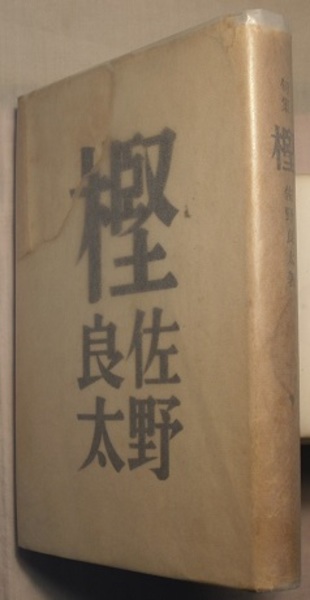 樫
佐野
良太
句集 樫 佐野良太著